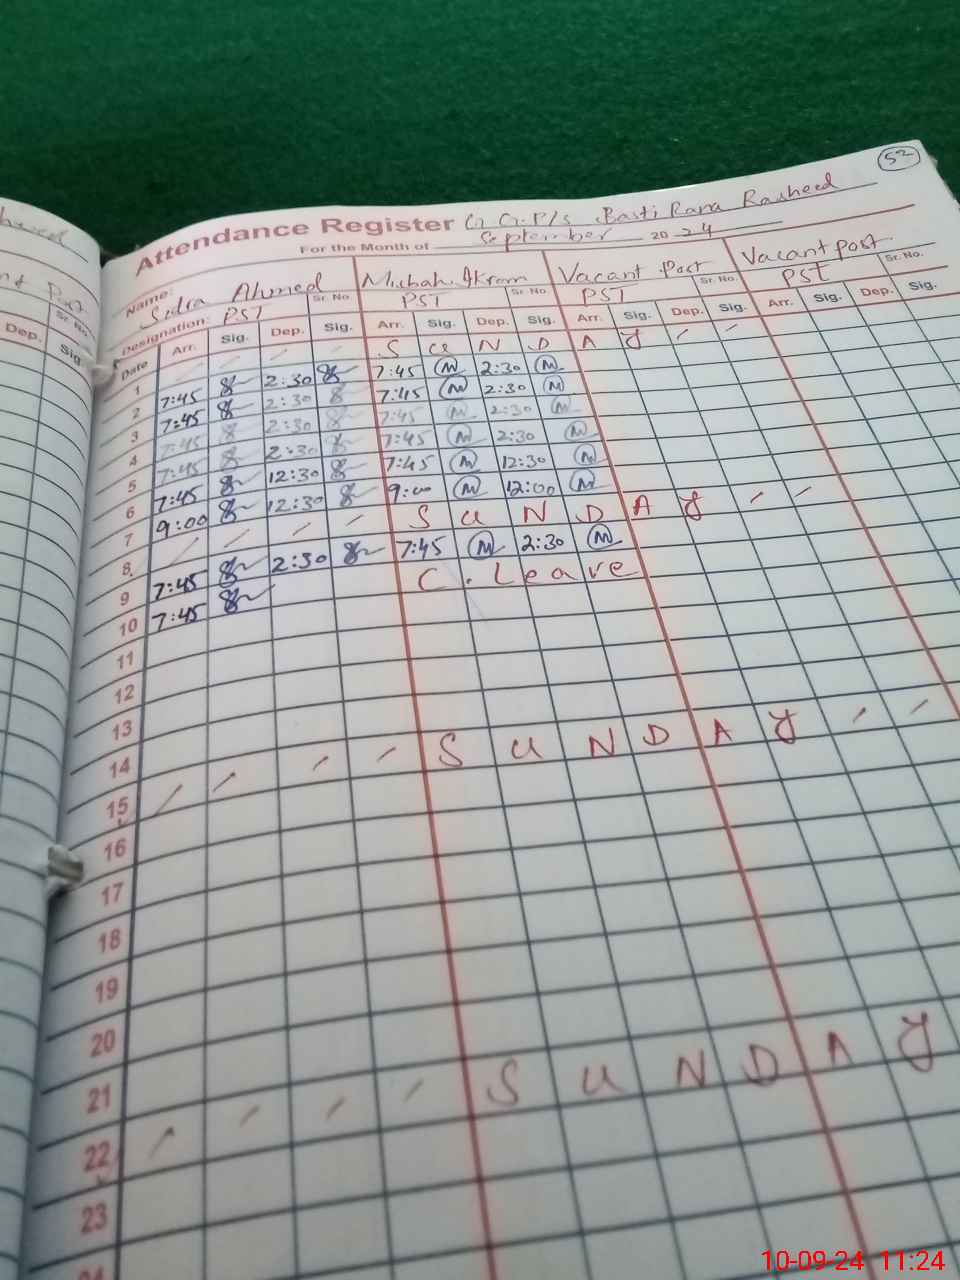 52
Attendance Register G.G.P/S Basti Rana Rasheed
For the Month of September 2024
Name: Sidra Ahmed Misbah Akram Vacant Post Vacant post
Designation: PST Sr. No. PST Sr. No. PST Sr. No. PST Sr. No.
Date Arr. Sig. Dep. Sig. Arr. Sig. Dep. Sig. Arr. Sig. Dep. Sig. Arr. Sig. Dep. Sig.
1 / / / / S U N D A Y / /
2 7:45 2:30 7:45 M 2:30 M
3 7:45 2:30 7:45 M 2:30 M
4 7:45 2:30 7:45 M 2:30 M
5 7:45 2:30 7:45 M 2:30 M
6 7:45 12:30 7:45 M 12:30 M
7 9:00 12:30 9:00 M 12:00 M
8 / / / / S U N D A Y / /
9 7:45 2:30 7:45 M 2:30 M
10 7:45 C. Leave
11
12
13
14
15 / / / / S U N D A Y / /
16
17
18
19
20
21
22 / / / / S U N D A Y
23
24
Dep. Sr. No.
Sig.
10-09-24 11:24